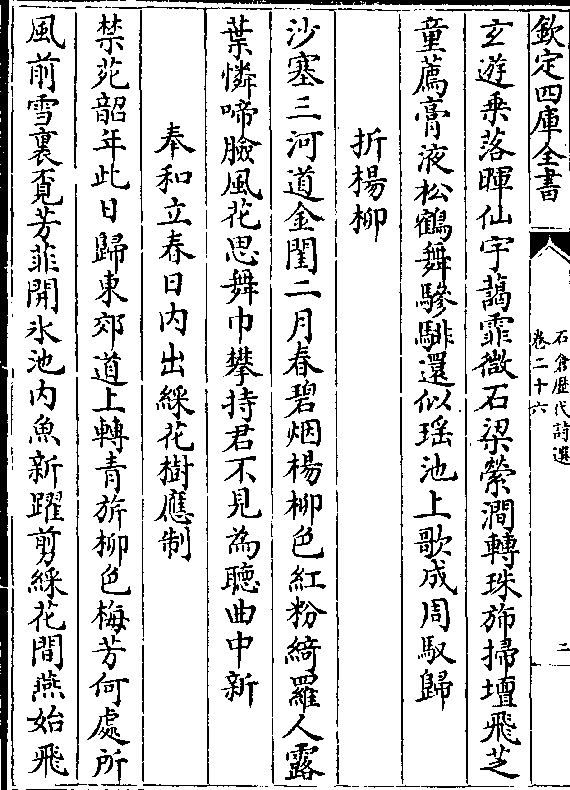 欽定四庫全書
石倉歴代詩選
卷二十六
二
玄遊乗落暉仙宇藹霏微石梁縈澗轉珠斾掃壇飛芝
童薦膏液松鶴舞驂騑還似瑶池上歌成周馭歸
折楊柳
沙塞三河道金閨二月春碧烟楊柳色紅粉綺羅人露
葉憐啼臉風花思舞巾攀持君不見為聴曲中新
奉和立春日内出綵花樹應制
禁苑韶年此日歸東郊道上轉青旂柳色梅芳何處所
風前雪裏覔芳菲開氷池内魚新躍剪綵花間燕始飛